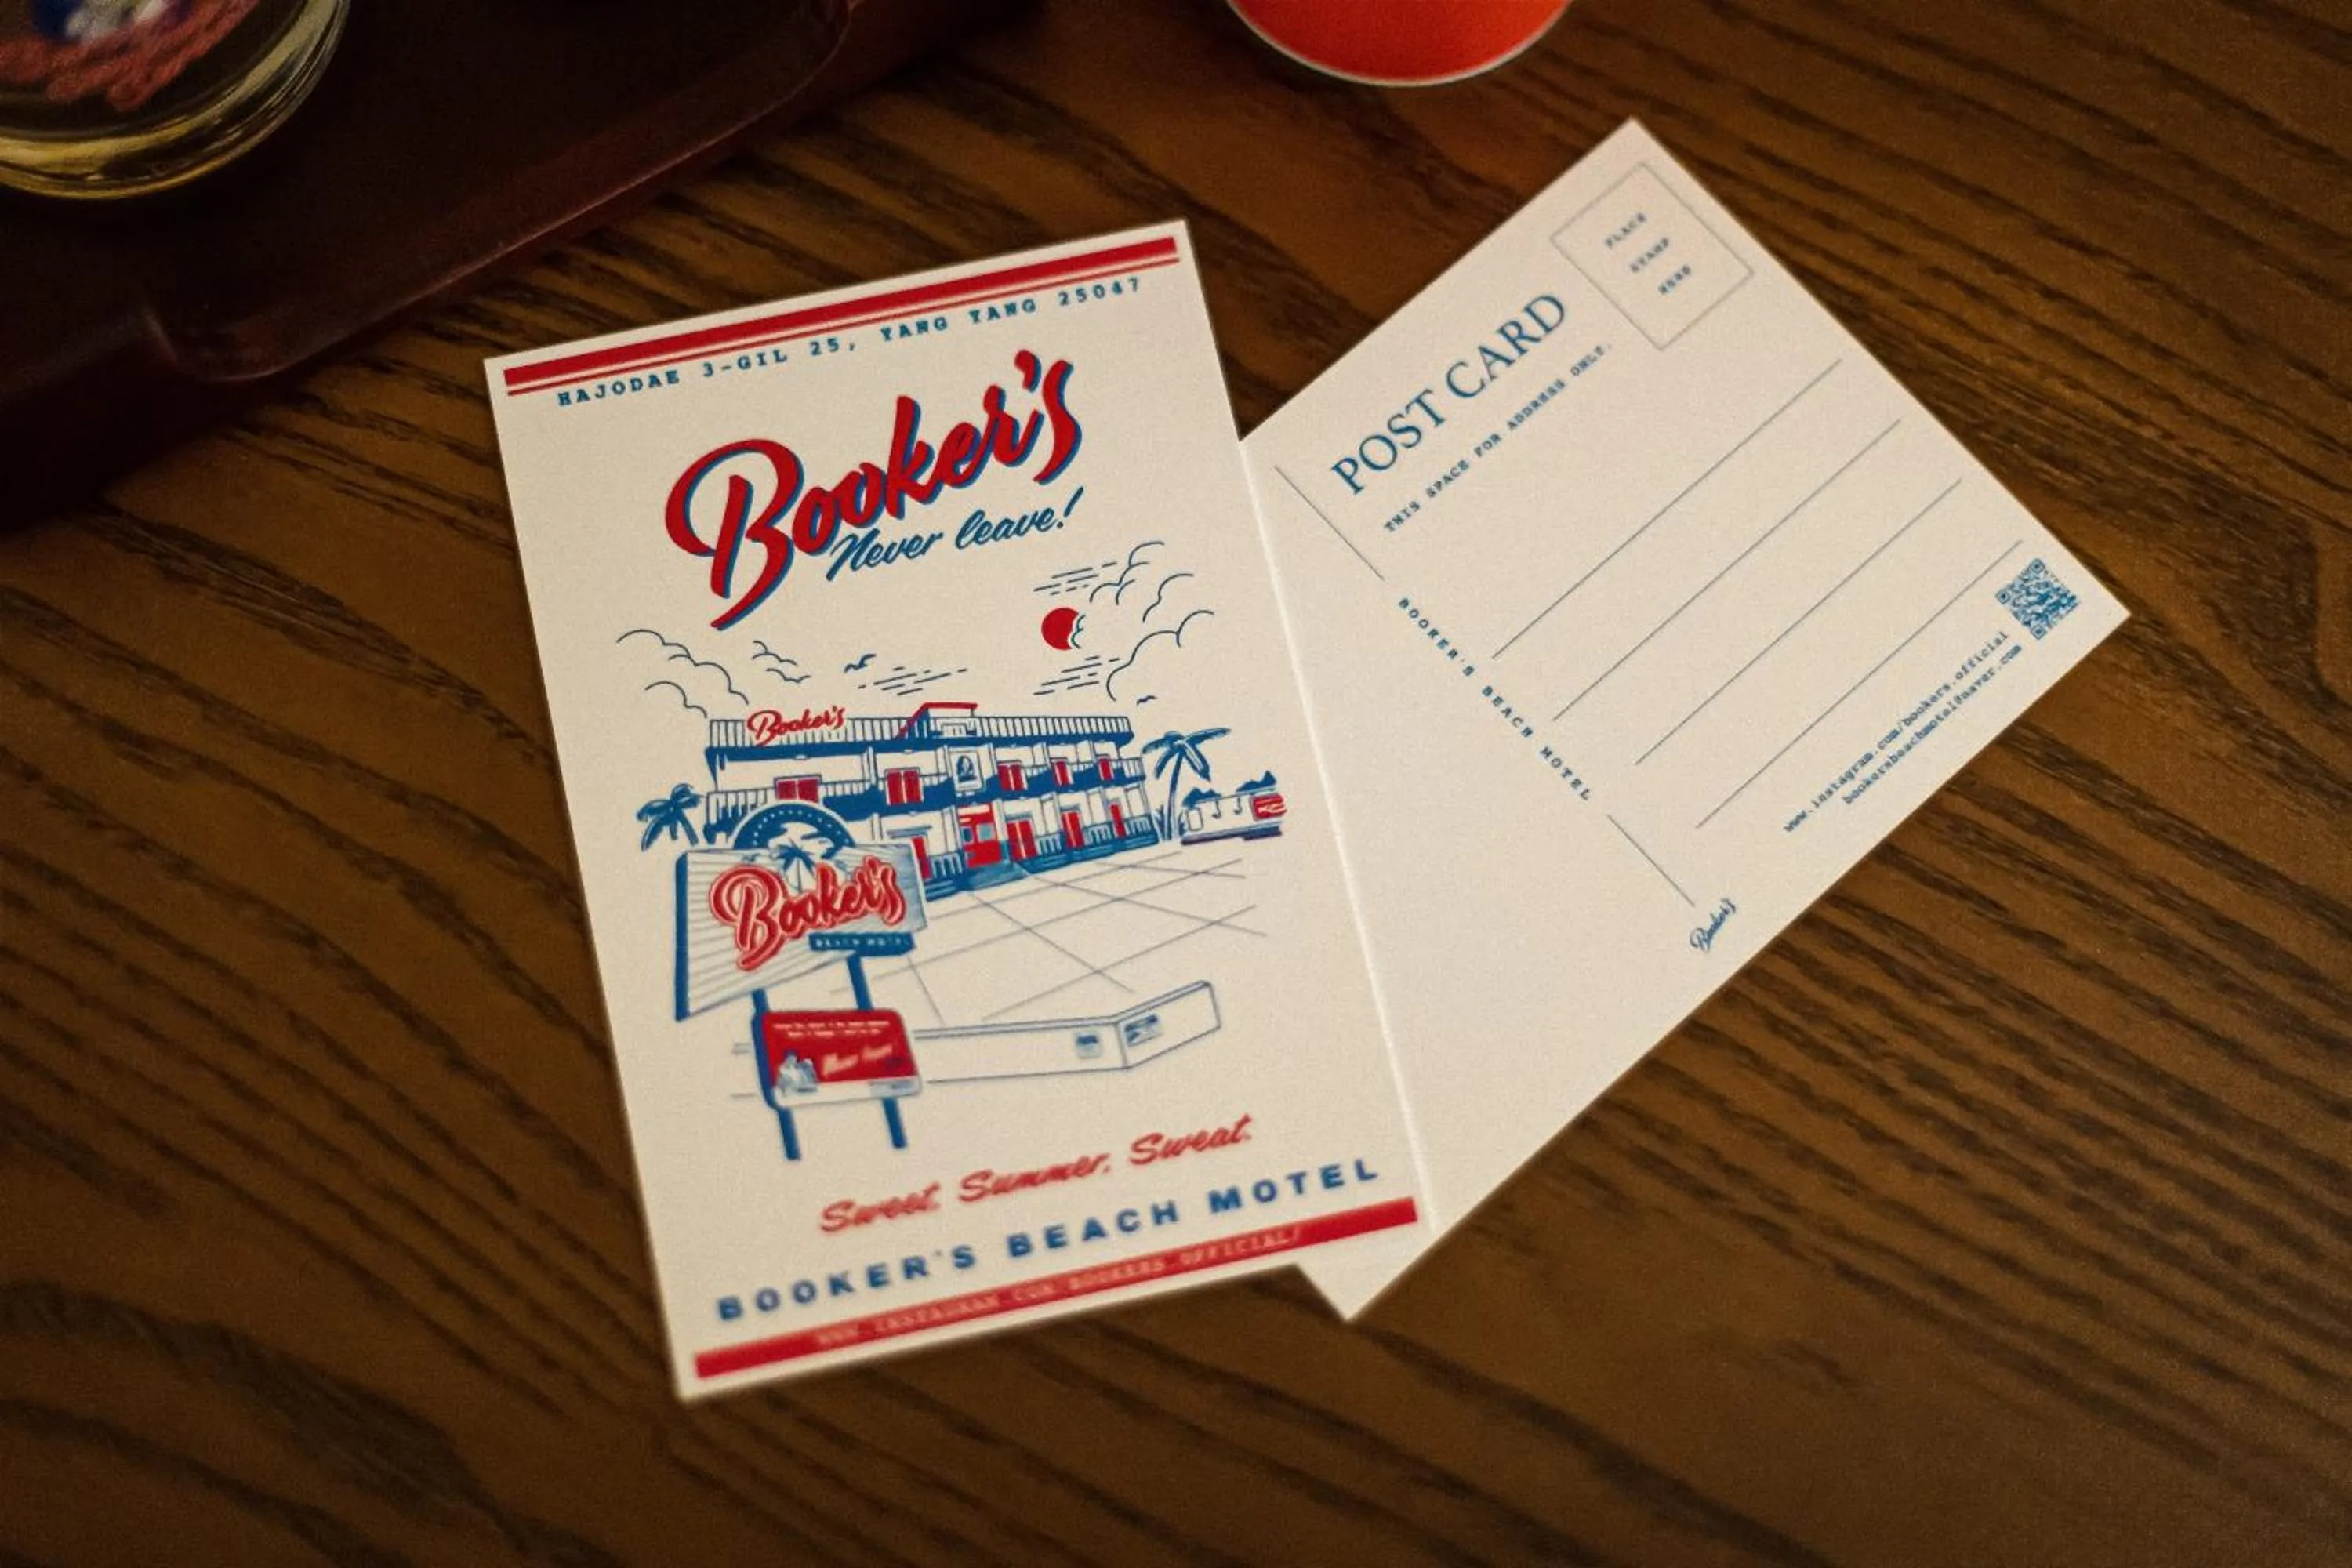 HAJODAE 3-GIL 25, YANG YANG 25047
Booker's
Never leave!
Booker's
Booker's
BEACH MOTEL
Never leave!
Sweet. Summer. Sweat.
BOOKER'S BEACH MOTEL
WWW INSTAGRAM COM BOOKERS OFFICIAL/
PLACE
STAMP
HERE
POST CARD
THIS SPACE FOR ADDRESS ONLY.
BOOKER'S BEACH MOTEL
www.instagram.com/bookers.official
bookersbeachmotel@naver.com
Booker's